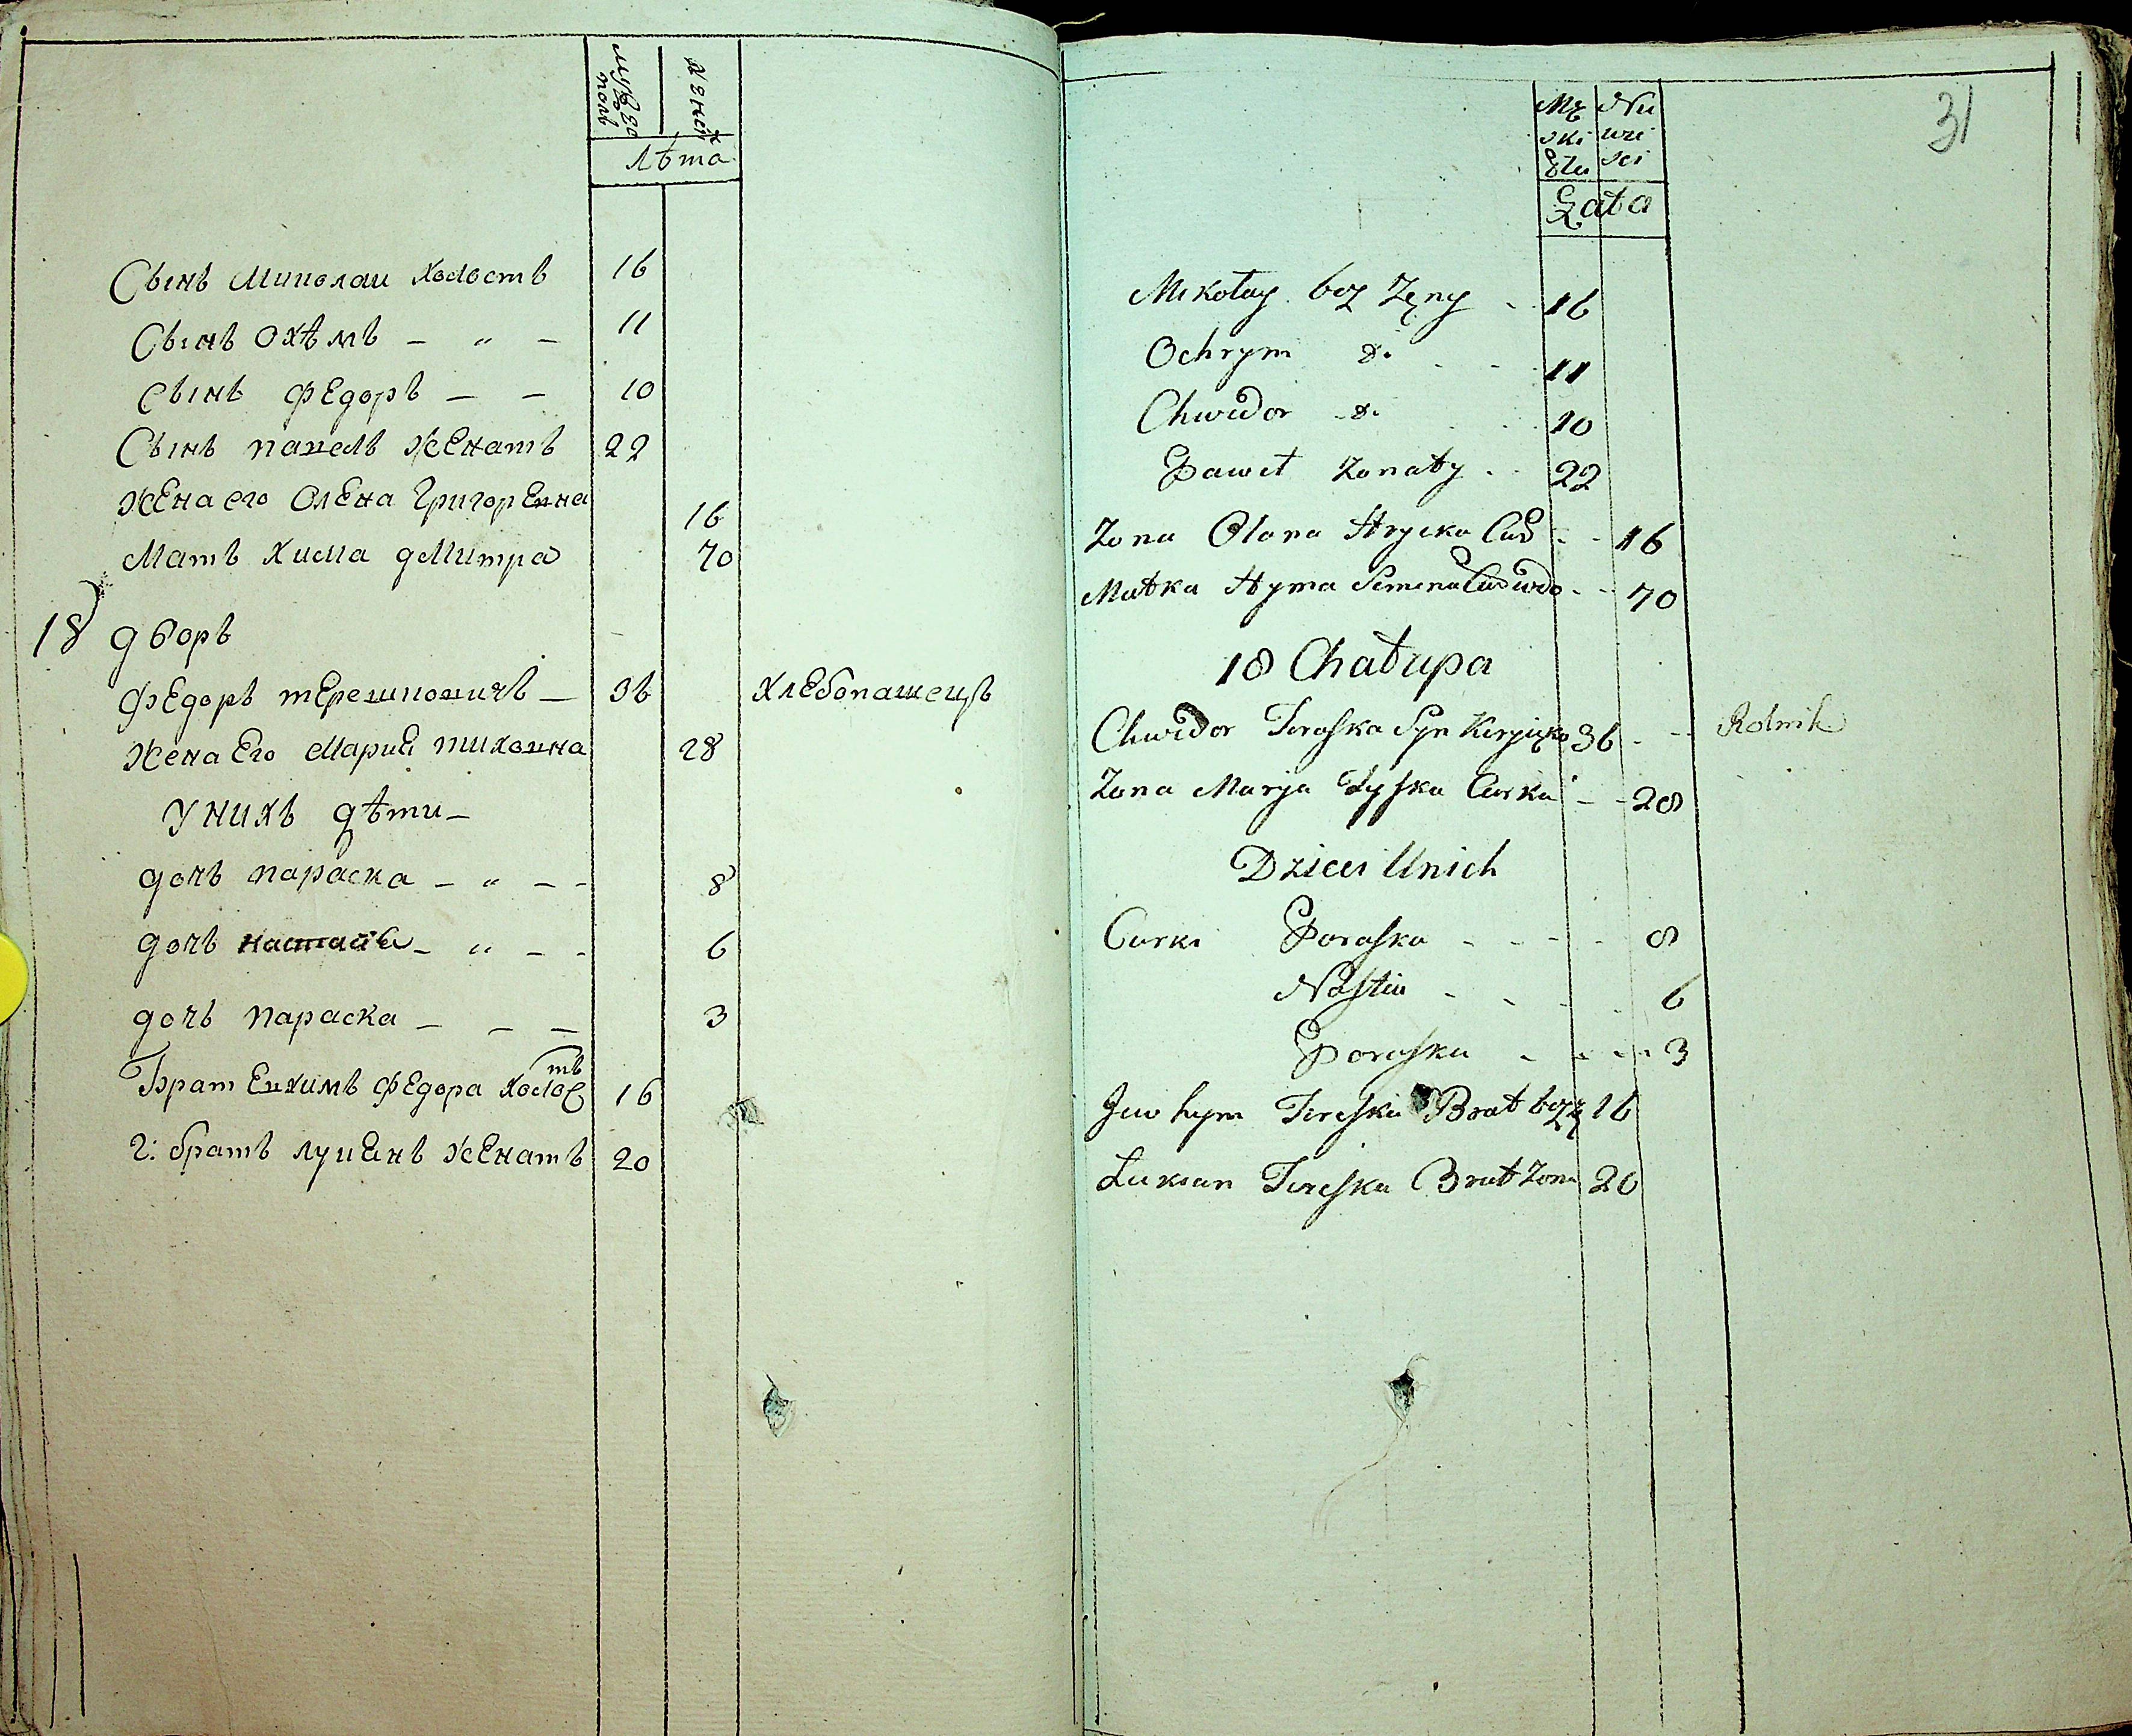 мужеска полъ
Женск
лѣта
Сынъ Миколаи холостъ 16
Сынъ Охѣмъ – „ – 11
Сынъ Федоръ – – 10
Сынъ павелъ женатъ 22
жена его Олена Григоревна 16
Мать Химa дмитра 70
18 дворъ
Федоръ терешковичъ – 36 хлебопашецъ
жена Его Мария тиховна 28
У нихъ дѣти –
дочь параска – „ – – 8
дочь настася – „ – – 6
дочь параска – – – 3
Брат Евхимъ Федора холостъ 16
2: братъ лукианъ женатъ 20
31
Mę Nie
ski wie
Płci sci
Lata
Mikołay bez Zeny 16
Ochrym d. 11
Chwedor d. 10
Paweł zonaty 22
Zona Olana Hrycka Cur 16
Matka Hyma Semena Cur wdo 70
18 Chałupa
Chwedor Tereszka Syn 36 Rolnik
Zona Marja Tyszka Curka 28
Dzieci Unich
Curki Poraska 8
Nastia 6
Poraska 3
Jewhym Tereszka Brat bez z 16
Łukian Tereszka Brat Zona 20